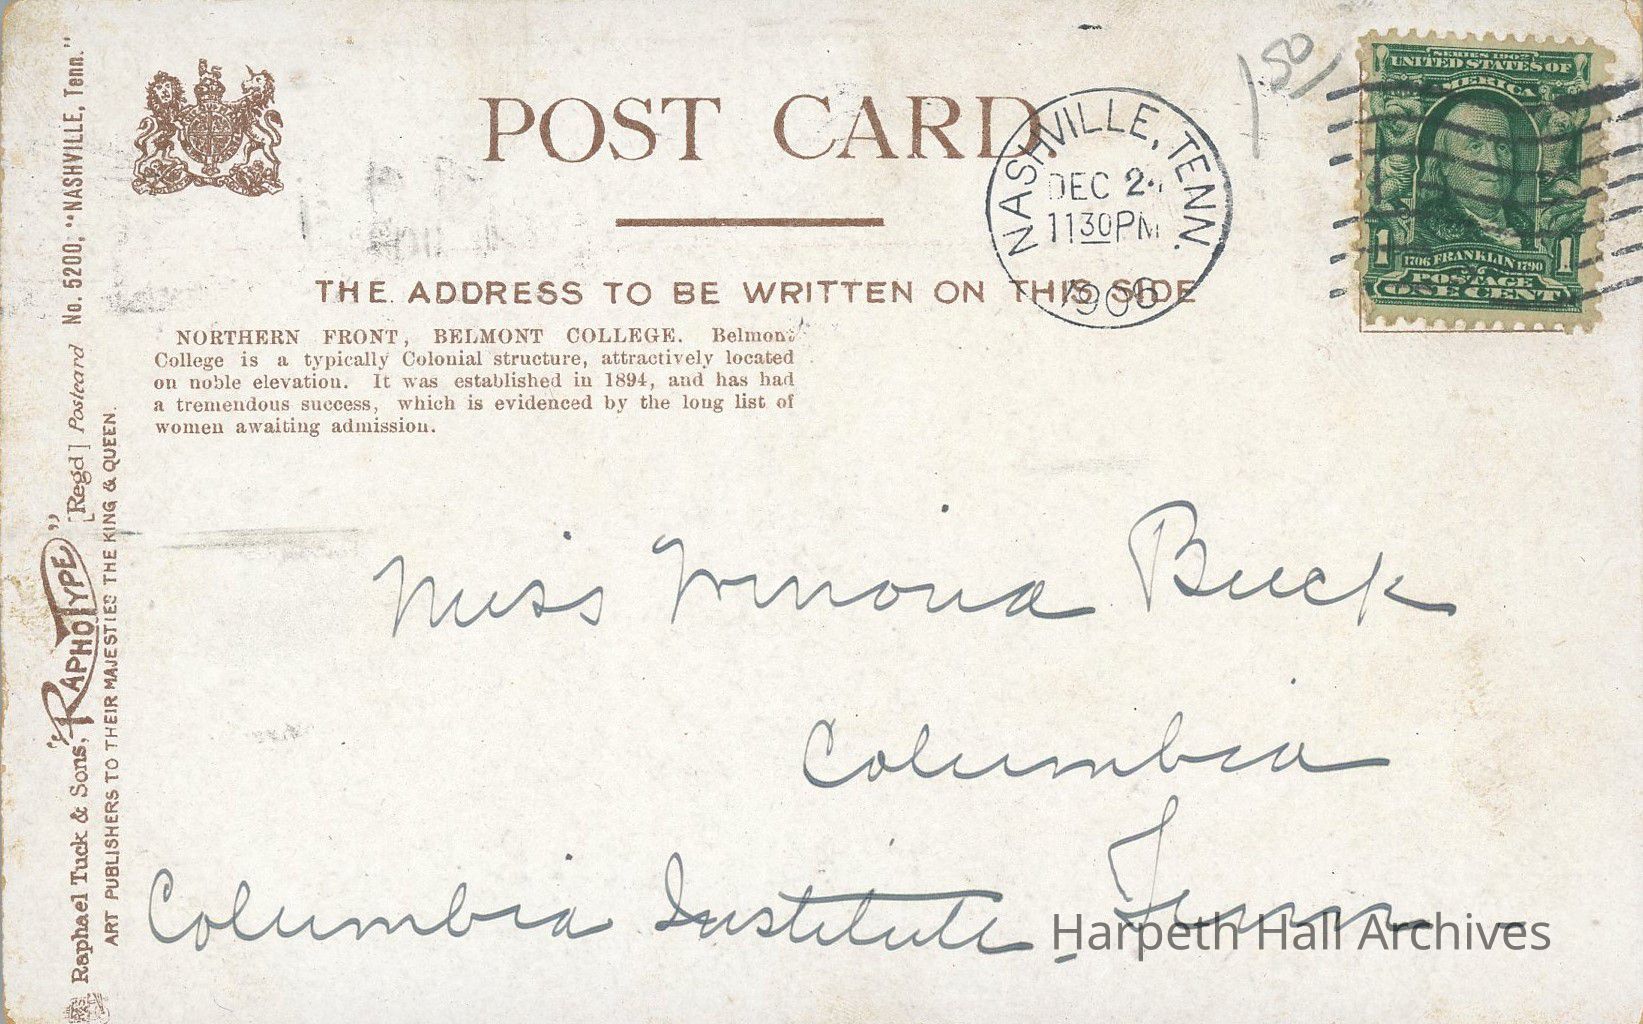 POST CARD.
NASHVILLE, TENN.
DEC 2
1130PM
1906
150
SERIES 1902
UNITED STATES OF
AMERICA
1706 FRANKLIN 1790
1 1
POSTAGE
ONE CENT
THE ADDRESS TO BE WRITTEN ON THIS SIDE
NORTHERN FRONT, BELMONT COLLEGE. Belmont
College is a typically Colonial structure, attractively located
on noble elevation. It was established in 1894, and has had
a tremendous success, which is evidenced by the long list of
women awaiting admission.
Raphael Tuck & Sons' "RAPHOTYPE" [Regd] Postcard No. 5200; "NASHVILLE, Tenn."
ART PUBLISHERS TO THEIR MAJESTIES THE KING & QUEEN.
Miss Winona Buck
Columbia
Tenn
Columbia Institute
Harpeth Hall Archives